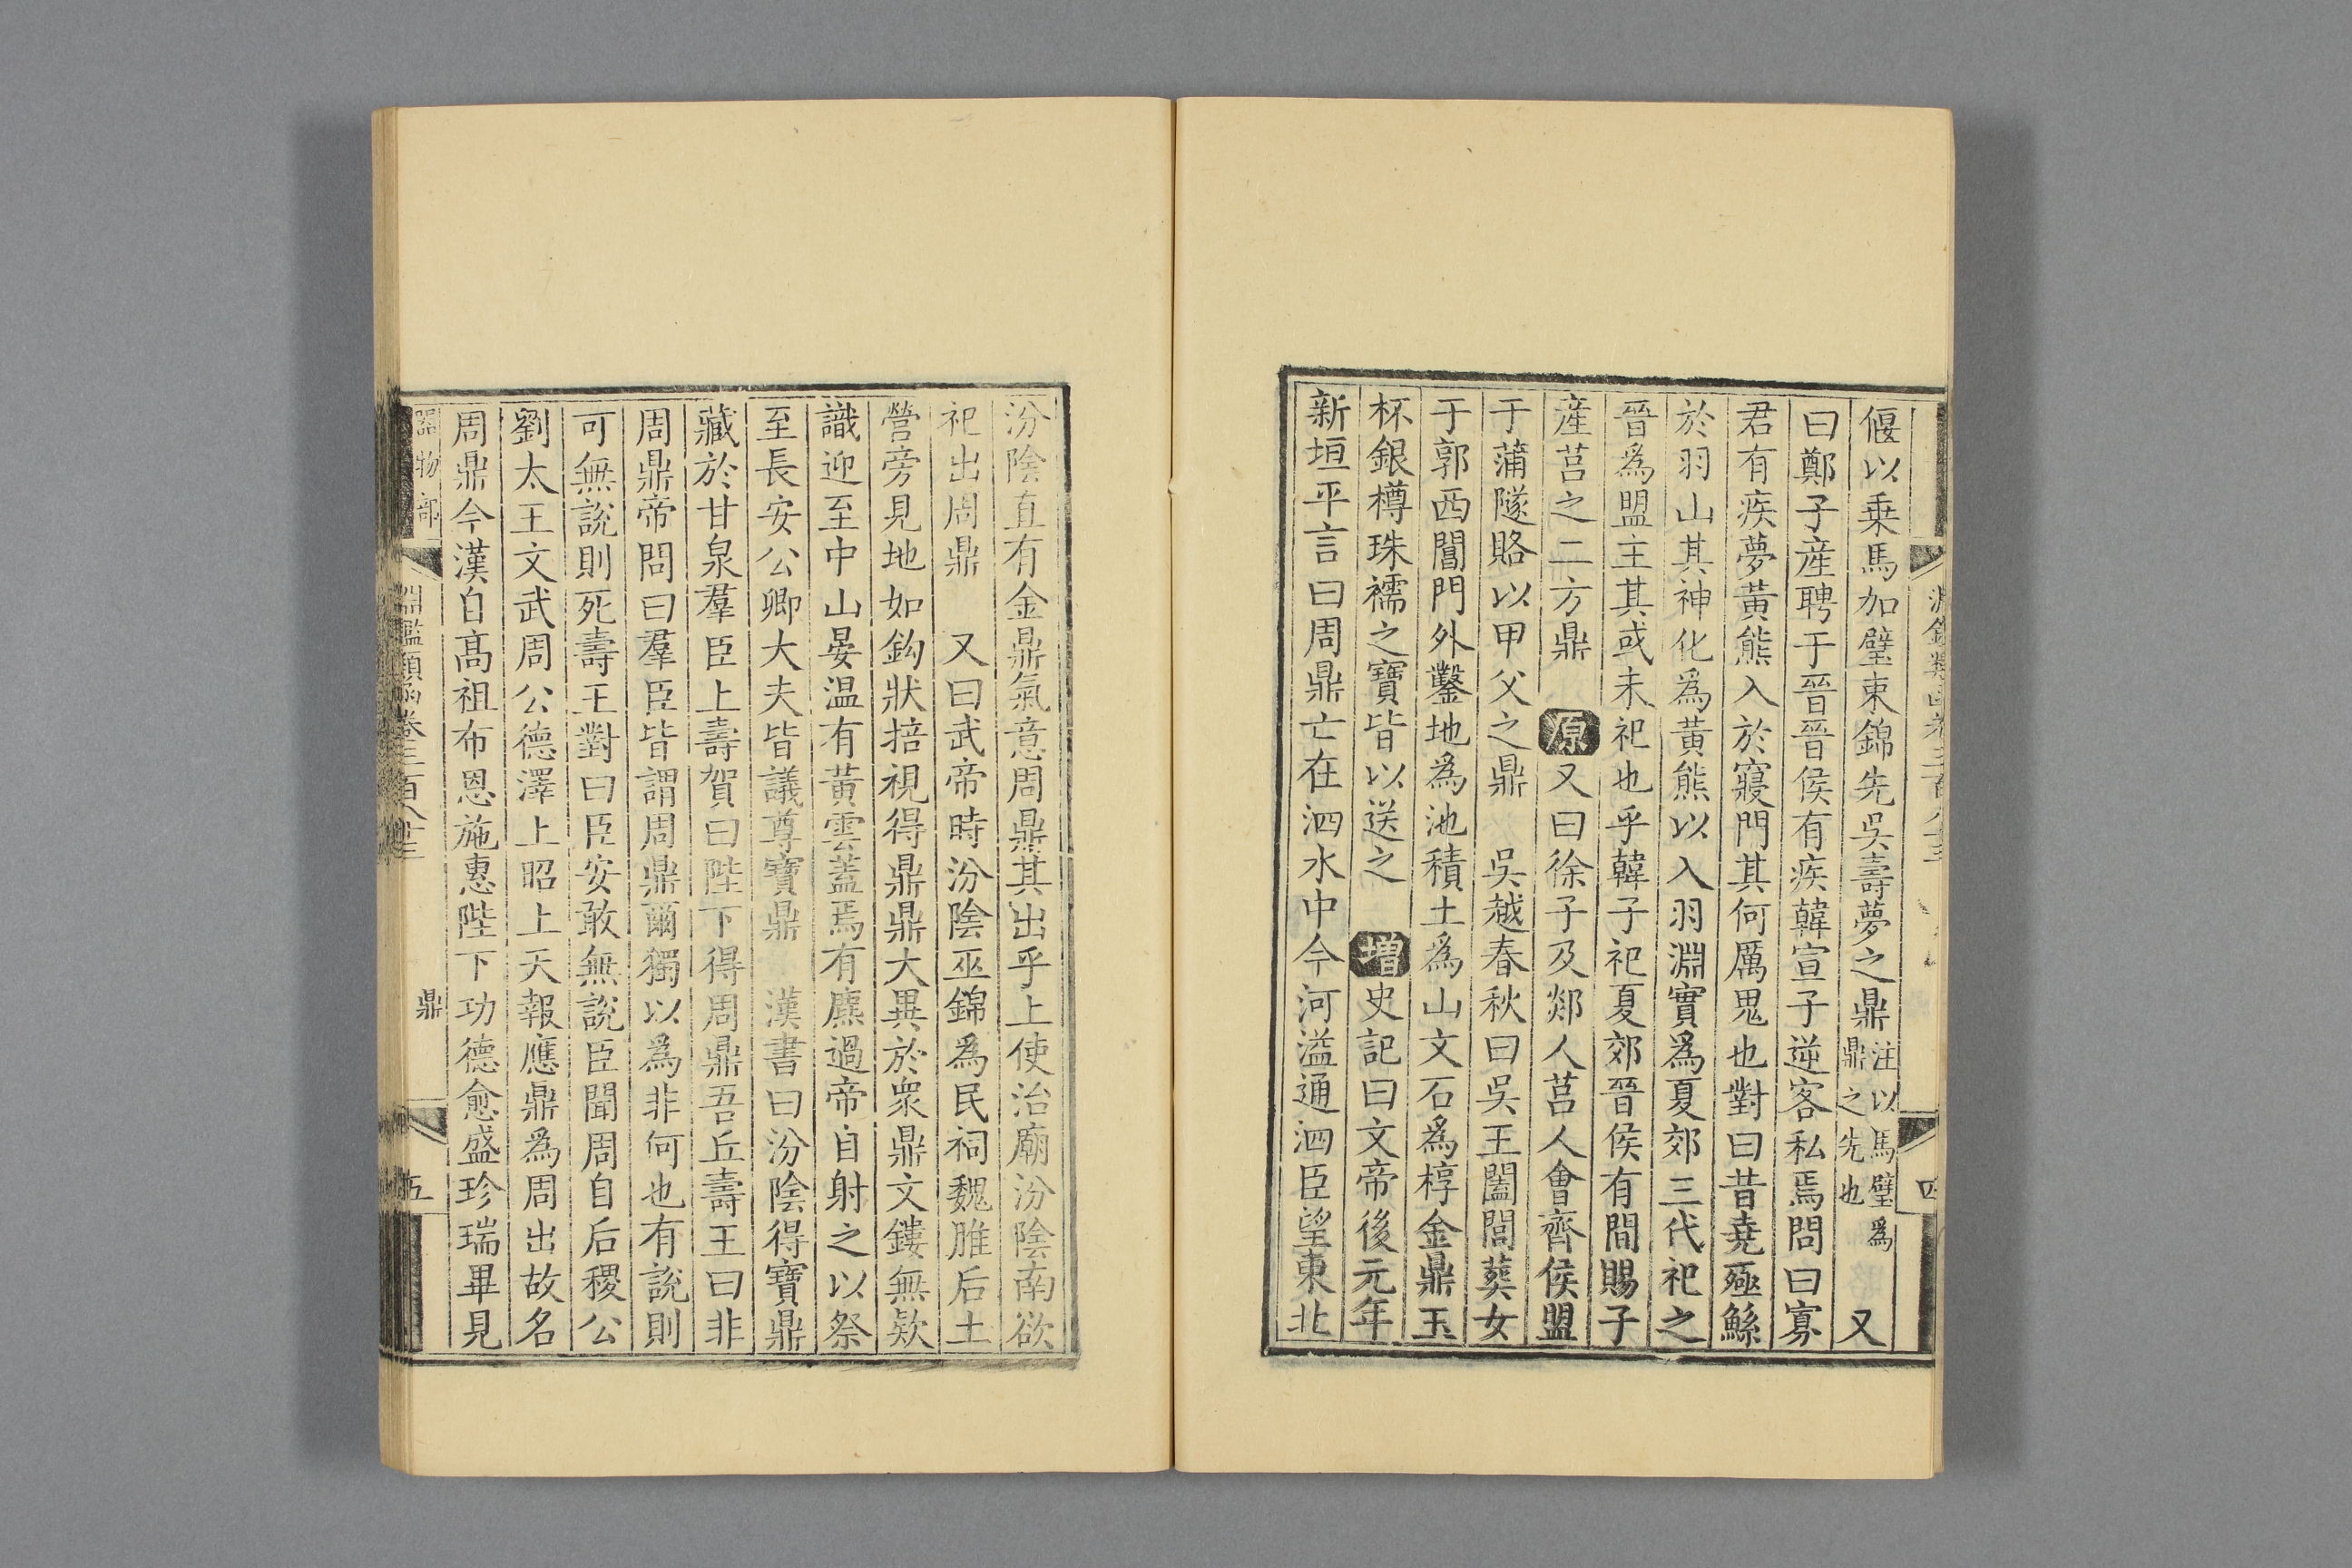 偃以乗馬加璧束錦先吳壽夢之鼎注以馬璧爲鼎之先也 又
曰鄭子産聘于晉晉侯有疾韓宣子逆客私焉問曰寡
君有疾夢黃熊入於寢門其何厲鬼也對曰昔堯殛鯀
於羽山其神化爲黃熊以入羽淵實爲夏郊三代祀之
晉爲盟主其或未祀也乎韓子祀夏郊晉侯有間賜子
産莒之二方鼎 原又曰徐子及郯人莒人會齊侯盟
于蒲隧賂以甲父之鼎 吳越春秋曰吳王闔閭葬女
于郭西閶門外鑿地為池積土爲山文石爲椁金鼎玉
杯銀樽珠襦之寶皆以送之 增史記曰文帝後元年
新垣平言曰周鼎亡在泗水中今河溢通泗臣望東北
四
汾陰直有金鼎氣意周鼎其出乎上使治廟汾陰南欲
祀出周鼎 又曰武帝時汾陰巫錦爲民祠魏脽后土
營旁見地如鈎狀掊視得鼎鼎大異於衆鼎文鏤無欵
識迎至中山晏温有黃雲蓋焉有麃過帝自射之以祭
至長安公卿大夫皆議尊寶鼎 漢書曰汾陰得寶鼎
藏於甘泉羣臣上壽賀曰陛下得周鼎吾丘壽王曰非
周鼎帝問曰羣臣皆謂周鼎爾獨以為非何也有說則
可無說則死壽王對曰臣安敢無說臣聞周自后稷公
劉太王文武周公德澤上昭上天報應鼎爲周出故名
周鼎今漢自高祖布恩施惠陛下功德愈盛珍瑞畢見
器物部 淵鑑類函卷三百八十三 鼎 五